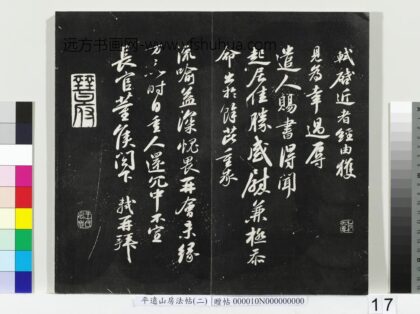 远方书画网-yfshuhua.com
軾啓近者經由獲
見為幸過辱
遣人賜書得聞
起居佳勝感慰兼極忝
命出於餘芘重承
流喻益深愧畏再會未緣
万万以時自重人還冗中不宣
長官董侯閤下 軾再拜
晉府
平遠山房法帖(二) 贈帖 000010N000000000
17